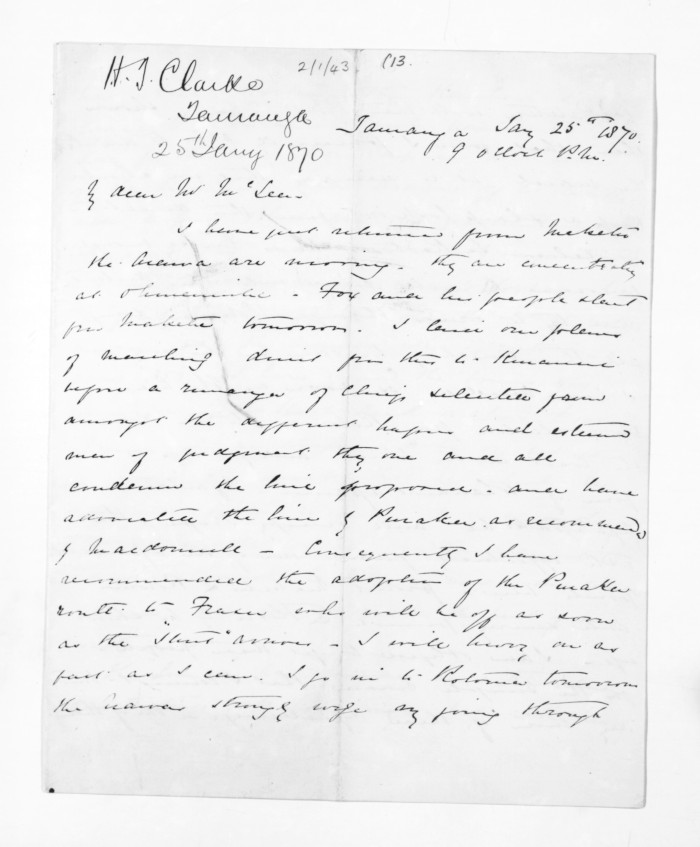 2/1/43 C13.
H. T. Clarke
Tauranga
25th Jany 1870
Tauranga Jany 25th 1870.
9 o'clock P.M.
My dear Mr McLean
I have just returned from Maketu
the Arawa are moving. they are concentrating
at Ohinemutu. Fox and his people start
for Maketu tomorrow. I laid our plans
of marching direct from this to
upon a of Chiefs selected from
amongst the different hapus and esteemed
men of judgment they one and all
condemn the line proposed. and have
advocated the line of Puraken as recommended
by Macdonnell – Consequently I have
recommended the adoption of the Puraken
route to Fraser who will be off as soon
as the "Sturt" arrives – I will hurry on as
fast as I can. I go in to Rotorua tomorrow
the Arawas strongly urge my going through